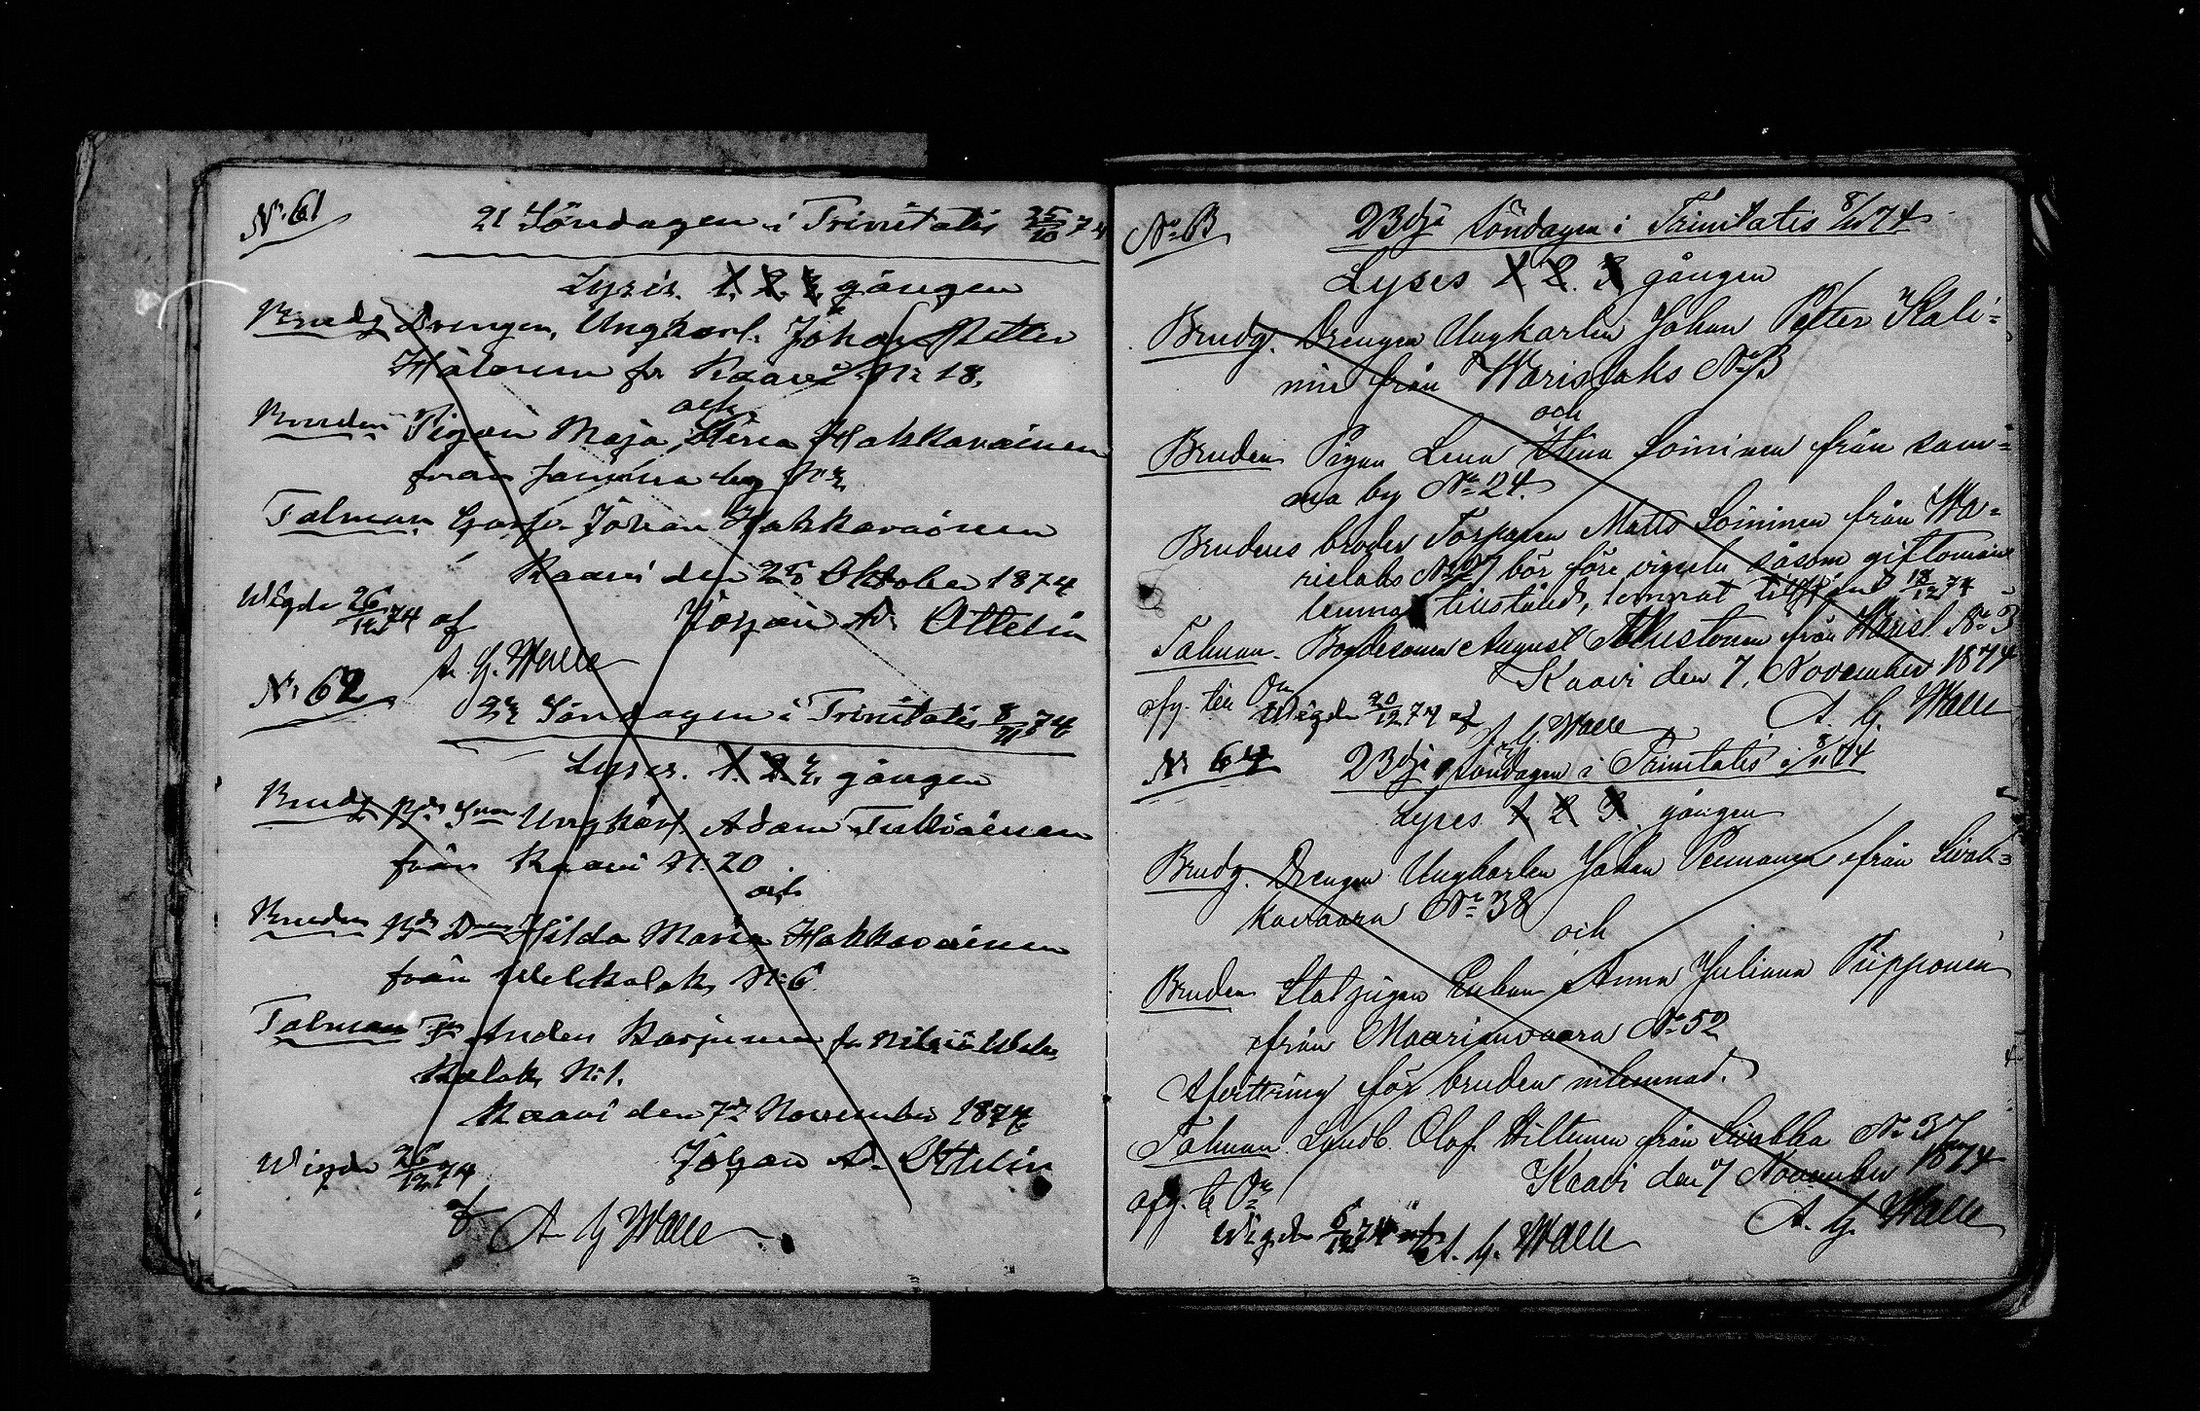 No 61
21 Söndagen i Trinitatis 25/10 74
Lyses. 1. 2. 3. gången
Brudg Drengen, Ungkarl. Johan Petter
Hälonen fr Kaavi No 18.
och
Bruden Pigan Maja Stina Hakkarainen
från samma by No
Talman Johan Hakkarainen
Kaavi den 25 Oktober 1874
Wigde 26/12 74 af
Johan Ad. Ottelin
A. G. Walle
No 62
Söndagen i Trinitatis 8/11 74
Lyses. 1. 2. 3. gången
Brudg Bd Son Ungkarl Adam
från Kaavi No 20
och
Bruden Bd Hilda Maria Hakkarainen
från No 6
Talman Anders fr Nilsiä
No 1.
Kaavi den 7de November 1874
Wigde 26/12 74
Johan Ad. Ottelin
af A. G. Walle
23dje söndagen i Trinitatis 8/11 74
Lyses 1 2. 3 gången
Brudg. Drengen Ungkarlen Johan Petter Kali=
nin från Warislaks No
och
Bruden Pigan Lena Stina Soininen från sam=
ma by No 24.
Brudens broder Torparen Matts Soininen från Wa=
rislaks No 27 bör före vigseln såsom giftoman
lemna tillstånd, lemnat
Talman. Bondesonen August från Warisl. No 3
Kaavi den 7. November 1874
afg. till
Wigde 20/12 74 af A. G. Walle
A. G. Walle
No 64
23dje söndagen i Trinitatis 8/11 74
Lyses 1 2 3 gången
Brudg. Drengen Ungkarlen Johan Pennanen från Sivak=
kavaara No 38
och
Bruden Enkan Anna Juliana Piipponen
från Maarianvaara No 52
Afvittring för bruden inlemnad.
Talman Olof Hiltunen från No 37
Kaavi den 7 November 1874
afg.
Wigde 6/12 74 af A. G. Walle
A. G. Walle